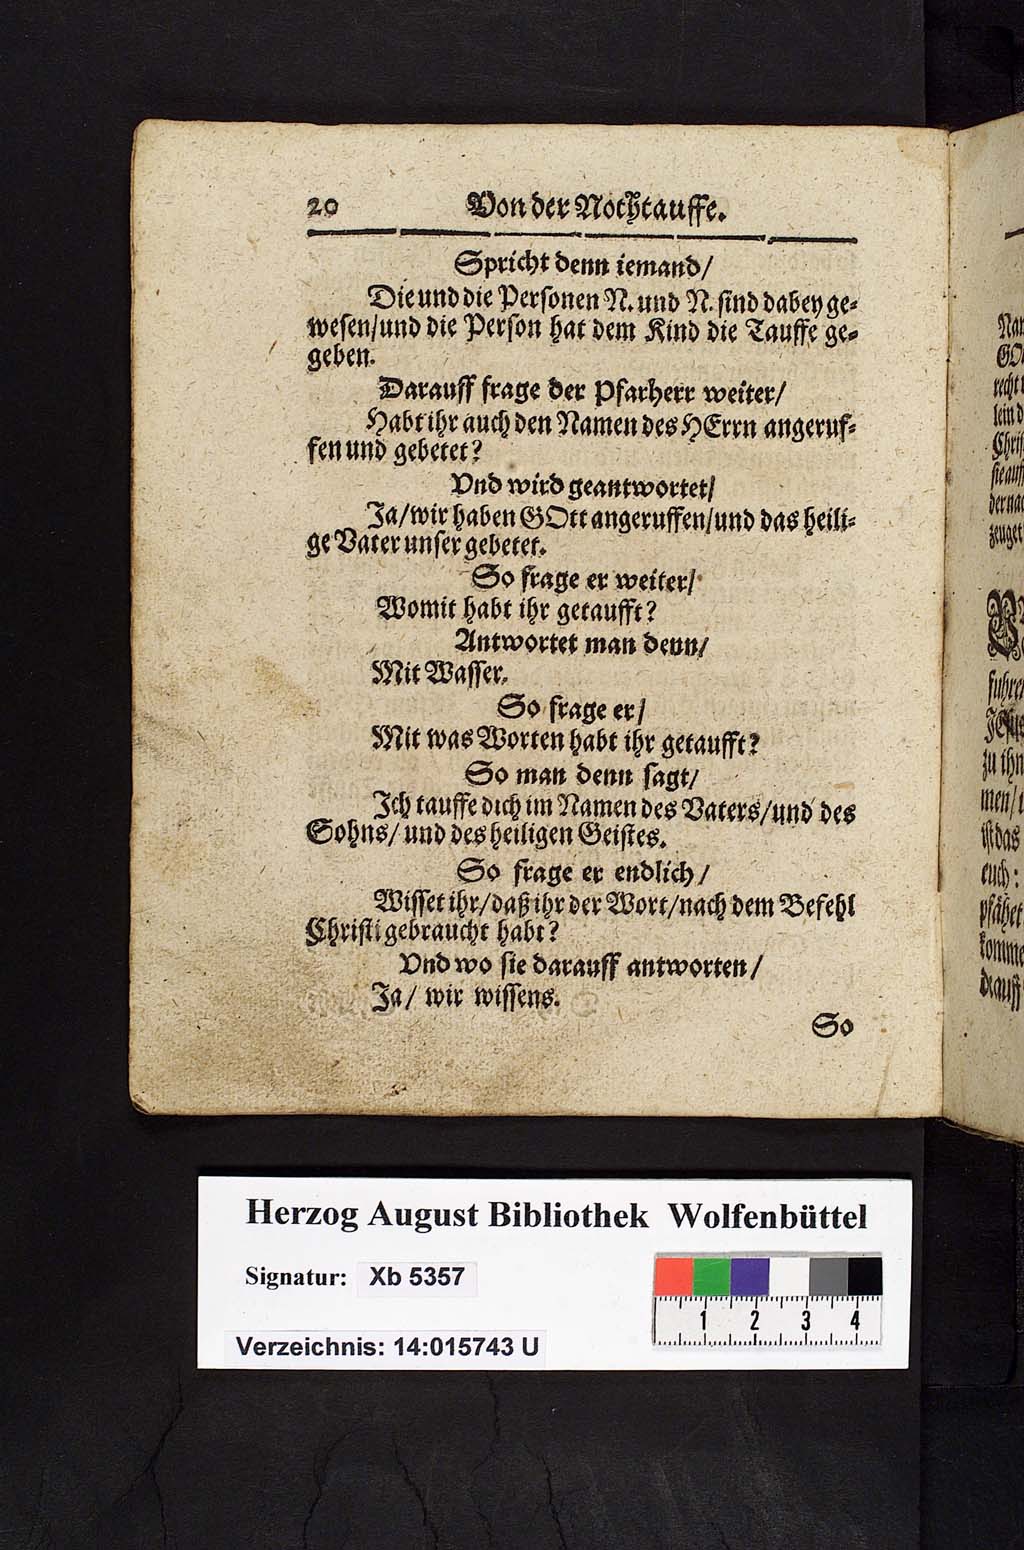 20 Von der Nothtauffe.
Spricht denn iemand/
Die und die Personen N. und N. sind dabey ge-
wesen/und die Person hat dem Kind die Tauffe ge-
geben.
Darauff frage der Pfarherr weiter/
Habt ihr auch den Namen des HErrn angeruf-
fen und gebetet?
Vnd wird geantwortet/
Ja/wir haben GOtt angeruffen/und das heili-
ge Vater unser gebetet.
So frage er weiter/
Womit habt ihr getaufft?
Antwortet man denn/
Mit Wasser.
So frage er/
Mit was Worten habt ihr getaufft?
So man denn sagt/
Ich tauffe dich im Namen des Vaters/und des
Sohns/ und des heiligen Geistes.
So frage er endlich/
Wisset ihr/daß ihr der Wort/nach dem Befehl
Christi gebraucht habt?
Vnd wo sie darauff antworten/
Ja/ wir wissens.
So
Herzog August Bibliothek Wolfenbüttel
Signatur: Xb 5357
Verzeichnis: 14:015743 U
1 2 3 4